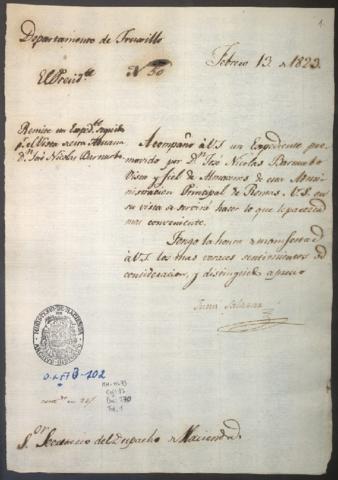 1
Departamento de Truxillo
Febrero 13. de 1823.
El Presid.te
N 50
Remite un Exped.te seguido
p.r el Vista de esta Aduana
D.n José Nicolas Barnuebo
Acompaño á V.S. un Expediente pro
movido por D.n José Nicolas Barnuebo
Vista y fiel de Almacenes de esta Admi
nistracion Principal de Rentas. V.S. en
su vista se servirá hacer lo que le parezca
mas conveniente.
Tengo la honra de manifestar
á V.S. los mas veraces sentimientos de
consideracion, y distinguido aprecio
Salazar
MINISTERIO DE HACIENDA
ARCHIVO HISTORICO
O.L. 73-102
S.or Secretario del Despacho de Hacienda